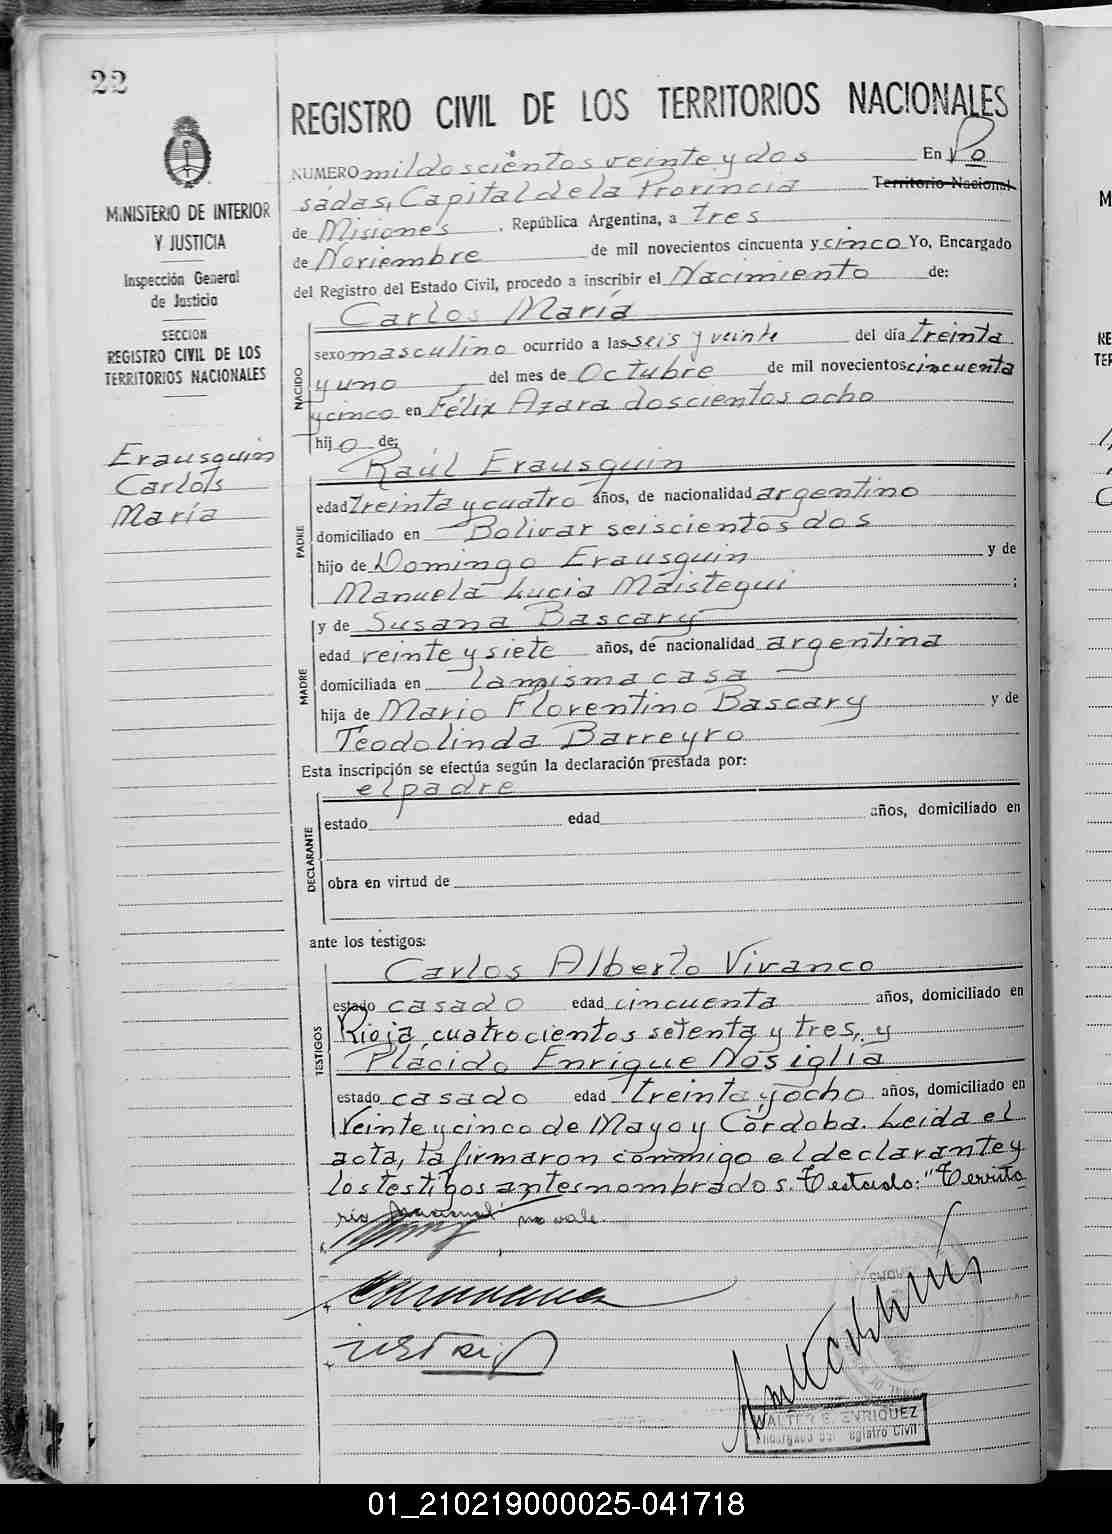 22
REGISTRO CIVIL DE LOS TERRITORIOS NACIONALES
MINISTERIO DE INTERIOR
Y JUSTICIA
Inspección General
de Justicia
SECCION
REGISTRO CIVIL DE LOS
TERRITORIOS NACIONALES
Erausquin
Carlos
María
NUMERO mil doscientos veinte y dos En Po
sádas, Capital de la Provincia Territorio Nacional
de Misiones, República Argentina, a tres
de Noviembre de mil novecientos cincuenta y cinco Yo, Encargado
del Registro del Estado Civil, procedo a inscribir el Nacimiento de:
Carlos María
NACIDO
sexo masculino ocurrido a las seis y veinte del día treinta
y uno del mes de Octubre de mil novecientos cincuenta
y cinco en Félix Azara doscientos ocho
hijo de:
Raúl Erausquin
PADRE
edad treinta y cuatro años, de nacionalidad argentino
domiciliado en Bolivar seiscientos dos
hijo de Domingo Erausquin y de
Manuela Lucia Maistegui ;
y de Susana Bascary
MADRE
edad veinte y siete años, de nacionalidad argentina
domiciliada en la misma casa
hija de Mario Florentino Bascary y de
Teodolinda Barreyro
Esta inscripción se efectúa según la declaración prestada por:
el padre
DECLARANTE
estado edad años, domiciliado en
obra en virtud de
ante los testigos:
Carlos Alberto Vivanco
TESTIGOS
estado casado edad cincuenta años, domiciliado en
Rioja, cuatrocientos setenta y tres, y
Plácido Enrique Nosiglia
estado casado edad treinta y ocho años, domiciliado en
Veinte y cinco de Mayo y Córdoba. Leida el
acta, la firmaron conmigo el declarante y
los testigos antes nombrados. Testado: "Territo
rio Nacional" no vale.
WALTER E. ENRIQUEZ
Encargado del Registro Civil
01_210219000025-041718